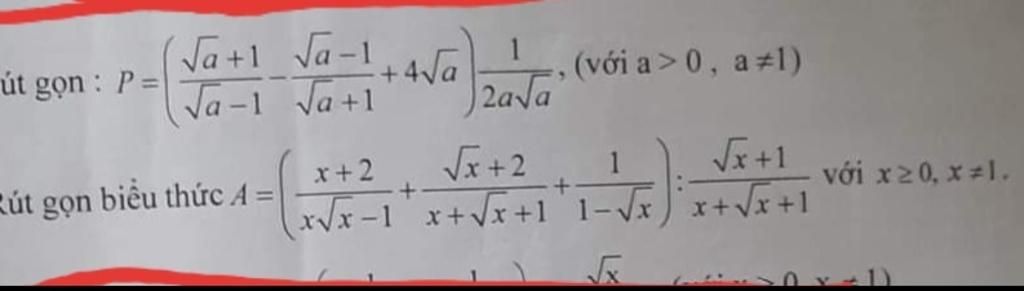 út gọn : P = ( (√a + 1)/(√a − 1) − (√a − 1)/(√a + 1) + 4√a ) 1/(2a√a), (với a > 0 , a ≠ 1)
út gọn biểu thức A = ( (x + 2)/(x√x − 1) + (√x + 2)/(x + √x + 1) + 1/(1 − √x) ) : (√x + 1)/(x + √x + 1) với x ≥ 0, x ≠ 1.
√x